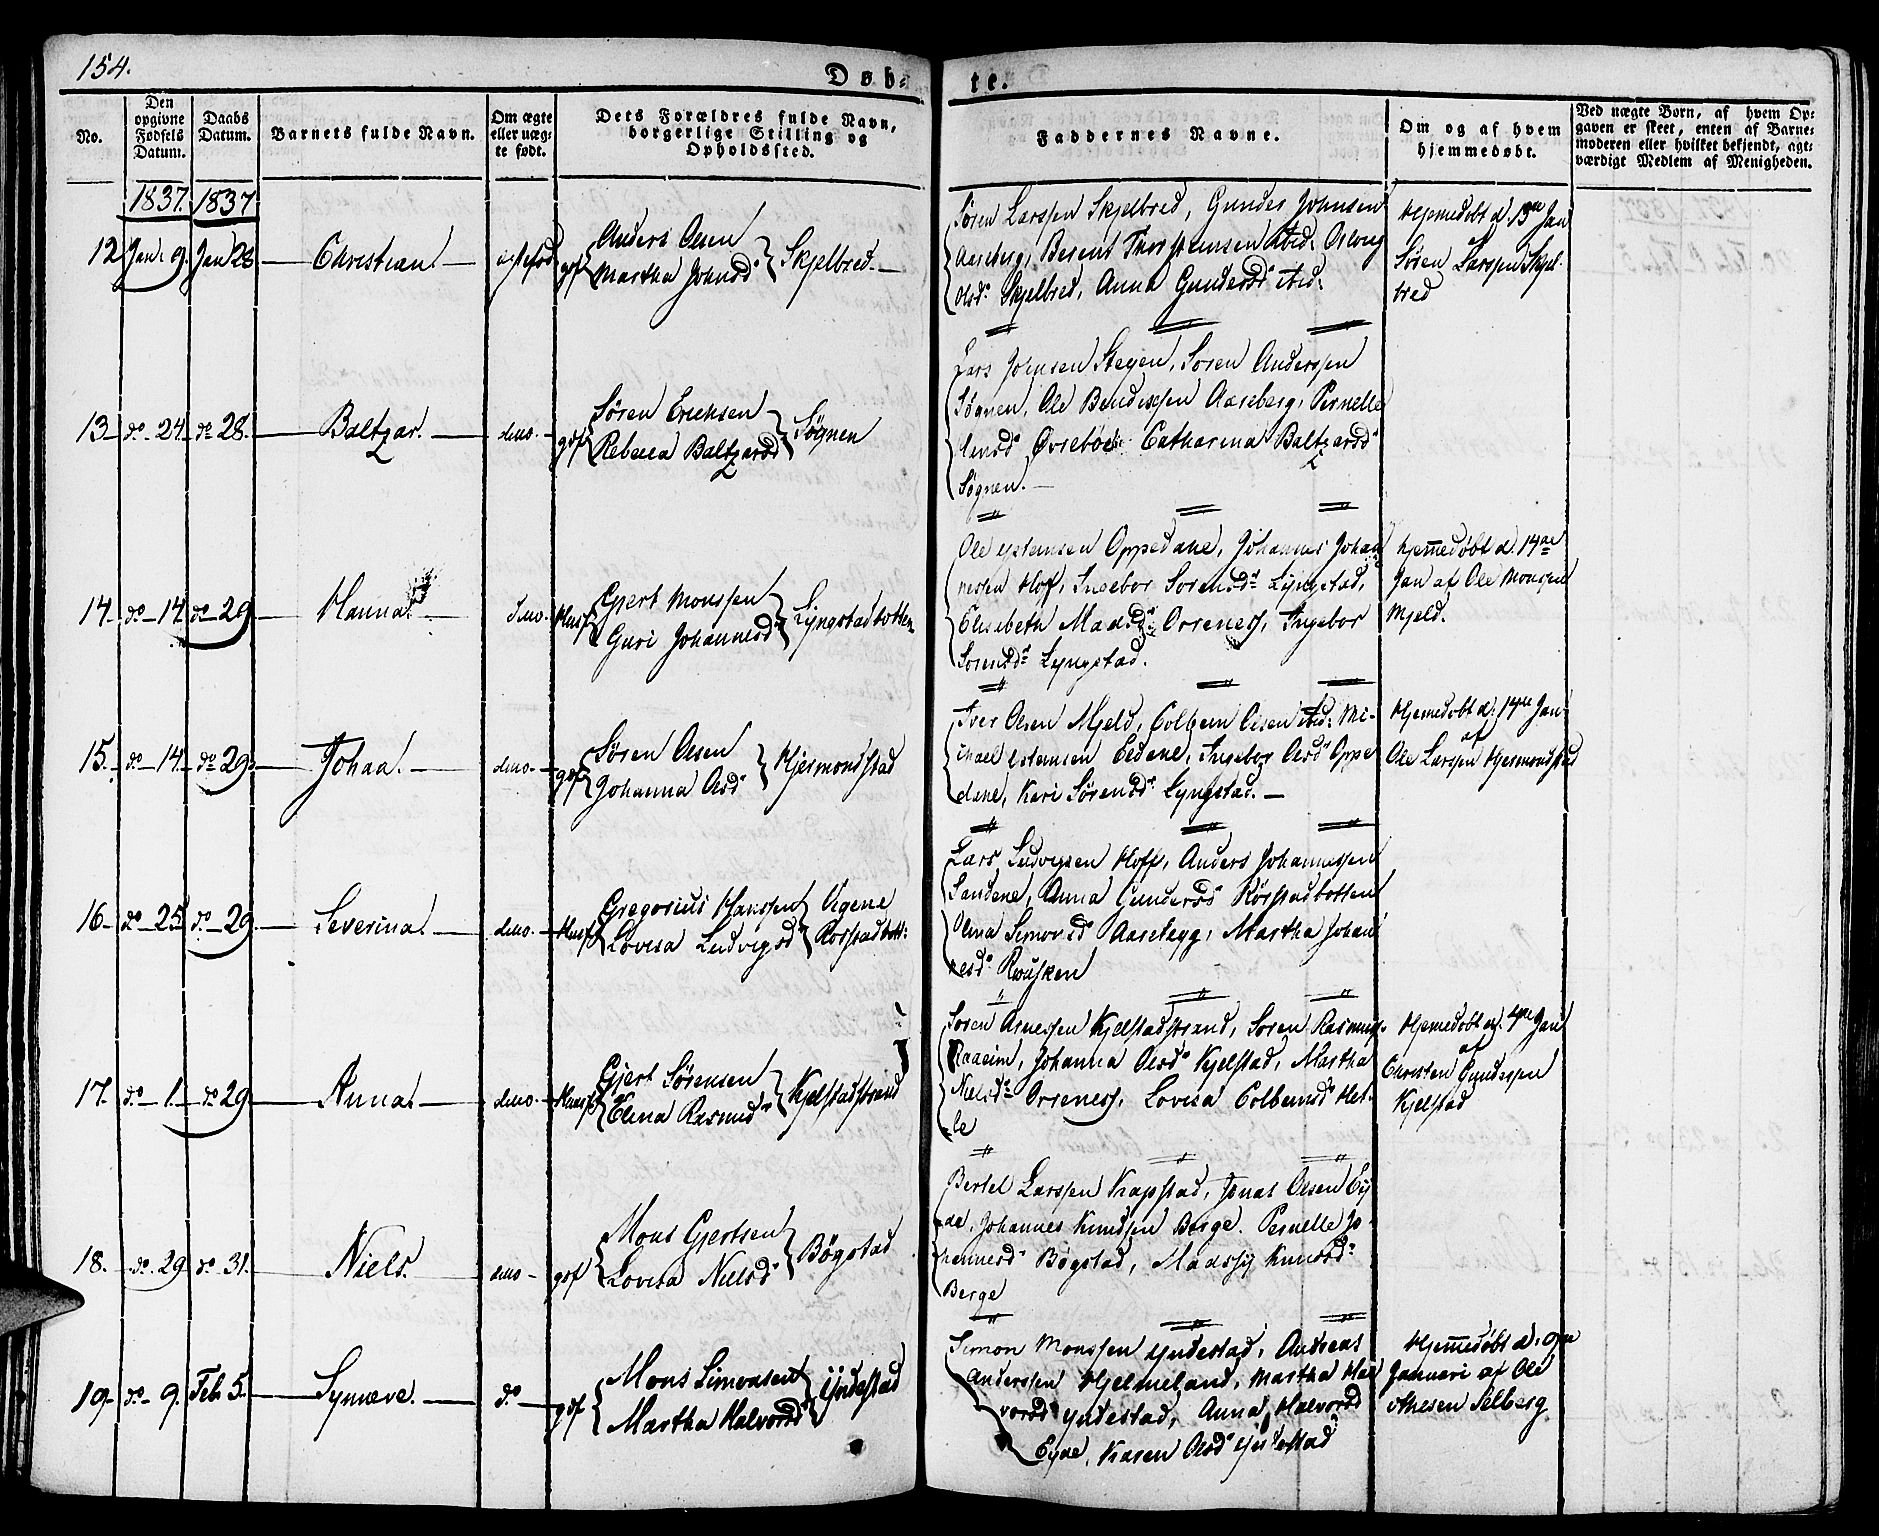 154.
Døb-
te.
No.
Den
opgivne
Fødsels
Datum.
Daabs
Datum.
Barnets fulde Navn.
Om ægte
eller uæg-
te født.
Dets Forældres fulde Navn,
borgerlige Stilling og
Opholdssted.
Faddernes Navne.
Om og af hvem
hjemmedøbt.
Ved uægte Born, af hvem Op-
gaven er skeet, enten af Barne-
moderen eller hvilket bekjendt, agt-
værdigt Medlem af Menigheden.
1837. 1837
12 Jan: 9. Jan 28 Christian. ægtefød
gdf Anders Olsen
Martha Johnsd:
Skjelbred.
Søren Larssen Skjelbred, Gunder Johnsen
Aareberg, Berent Thorstensen ibid:
Olsd: Skjelbred, Anna Gundersd: ibid:
Hjemedøbt d. 13de Jan
af
Søren Larssen Skjel-
bred
13 do 24 do 28. Baltzar. dito
gdf Søren Erichsen
Rebecca Baltzarsd
Søgnen
Lars Jensen Stegen, Soren Anderssen
Søgnen, Ole Bendixsen Aareberg, Pernelle
Jensd: Øvrebøe Catharina Baltzarsd:
Søgnen.
14 do 14 do 29 Hanna. dito
Husf Gjert Monssen
Guri Johannesd:
Lyngstadbotten
Ole Oppedane, Johannes Johan
nessen Hoff, Ingebor Sorensd: Lyngstad,
Elisabeth Madsd: Orreness, Ingebor
Sorensd: Lyngstad.
Hjemedøbt d. 14de
Jan af Ole Monssen
Mjeld.
15. do 14. do 29. Johan. dito
gdf Søren Olsen
Johanna Olsd:
Hjermondstad
Iver Olsen Mjeld, Colbein Olsen ibid: Mi-
chael Eedene, Ingebor Olsd: Oppe
dane, Kari Sørensd: Lyngstad.
Hjemedøbt d. 14de Jan
af
Ole Larssen Hjermondstad
16 do 25 do 29. Severina. dito
Husf Gregorius Hanssen
Lovisa Ludvigsd:
Vigene
Rorstadbott:
Lars Ludvigsen Hoff, Anders Johannessen
Sandene, Anna Gundersd: Rørstadbotten
Olena Simonsd: Aaseskygg, Martha Johan
nesd:
17. do 1. do 29 Anna. dito
Husf Gjert Sørensen
Elena Rasmusd:
Kjelstadstrand
Søren Arnessen Kjelstadstrand, Soren Rasmuss.
Raaeim, Johanna Olsd: Kjelstad, Martha
Nielsd: Orreness, Lovisa Colbeinsd: Hel-
le
Hjemedøbt d. 4de Jan
af
Christen Gunderssen
Kjelstad
18. do 29 do 31. Niels.
gdf Mons Gjertsen
Lovisa Nielsd:
Bøgstad
Bertel Larssen Kapstad, Jonas Olsen Ey
de, Johannes Knudsen Berge. Pernelle Jo-
hannesd: Bøgstad, Knudsd:
Berge
19 do 9. Feb 5. Synneve. do
gdf Mons Simonsen
Martha Halvorsd:
Yndestad
Simon Monssen Yndestad, Andreas
Anderssen Hjelmeland, Martha Hal
vorsd: Yndestad, Anna Halvorsd
Eyde, Karen Olsd: Yndestad
Hjemmedøbt d: 9de
Januari af Ole
Selberg.